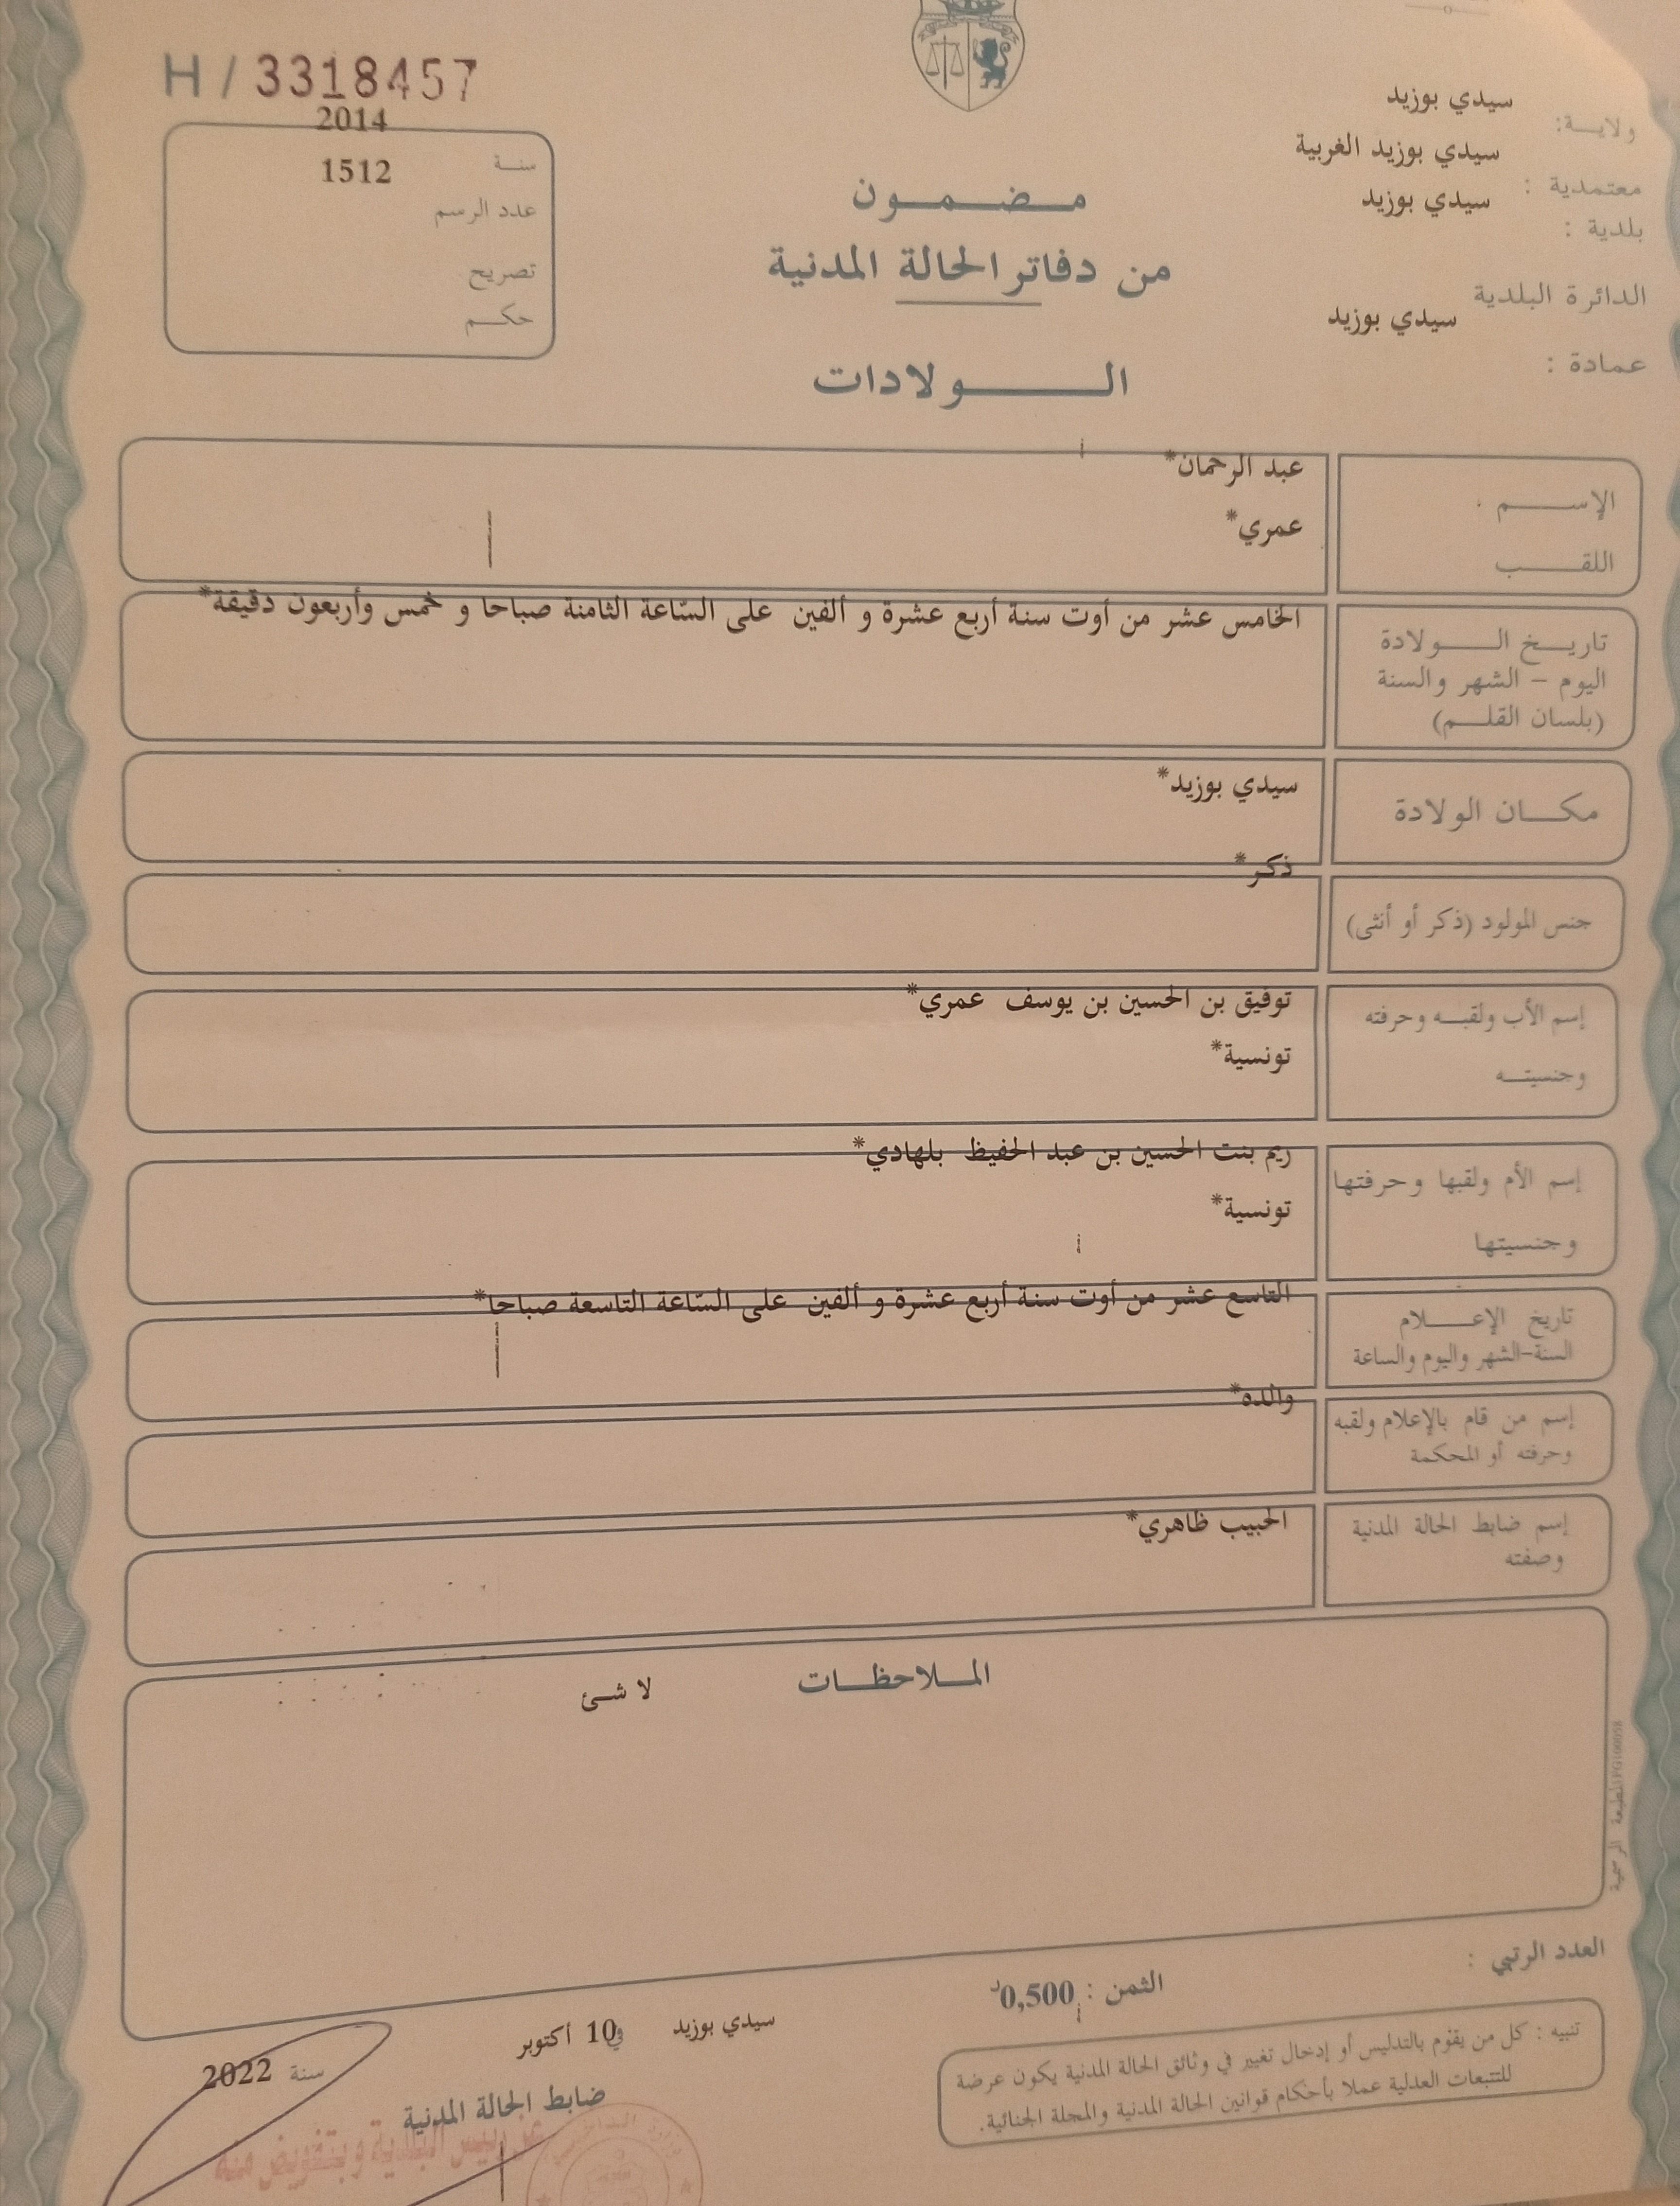 H / 3318457
2014
سنة
1512
عدد الرسم
تصريح
حكم
مضمون
من دفاتر الحالة المدنية
الولادات
سيدي بوزيد
ولاية:
سيدي بوزيد الغربية
معتمدية :
سيدي بوزيد
بلدية :
الدائرة البلدية
سيدي بوزيد
عمادة :
عبد الرحمان*
الإسم
عمري*
اللقب
الخامس عشر من أوت سنة أربع عشرة و ألفين على السّاعة الثامنة صباحا و خمس وأربعون دقيقة*
تاريخ الولادة
اليوم - الشهر والسنة
(بلسان القلم)
سيدي بوزيد*
مكان الولادة
ذكر*
جنس المولود (ذكر أو أنثى)
توفيق بن الحسين بن يوسف عمري*
إسم الأب ولقبه وحرفته
تونسية*
وجنسيته
ريم بنت الحسين بن عبد الحفيظ بلهادي*
إسم الأم ولقبها وحرفتها
تونسية*
وجنسيتها
التاسع عشر من أوت سنة أربع عشرة و ألفين على السّاعة التاسعة صباحا*
تاريخ الإعلام
السنة-الشهر واليوم والساعة
والده*
إسم من قام بالإعلام ولقبه
وحرفته أو المحكمة
الحبيب ظاهري*
إسم ضابط الحالة المدنية
وصفته
الملاحظات
لا شئ
المطبعة الرسمية
العدد الرتبي :
الثمن : 0,500د
تنبيه : كل من يقوم بالتدليس أو إدخال تغيير في وثائق الحالة المدنية يكون عرضة
للتتبعات العدلية عملا بأحكام قوانين الحالة المدنية والمجلة الجنائية.
سيدي بوزيد في 10 أكتوبر
سنة 2022
ضابط الحالة المدنية
عن رئيس البلدية وبتفويض منه
وزارة الداخلية